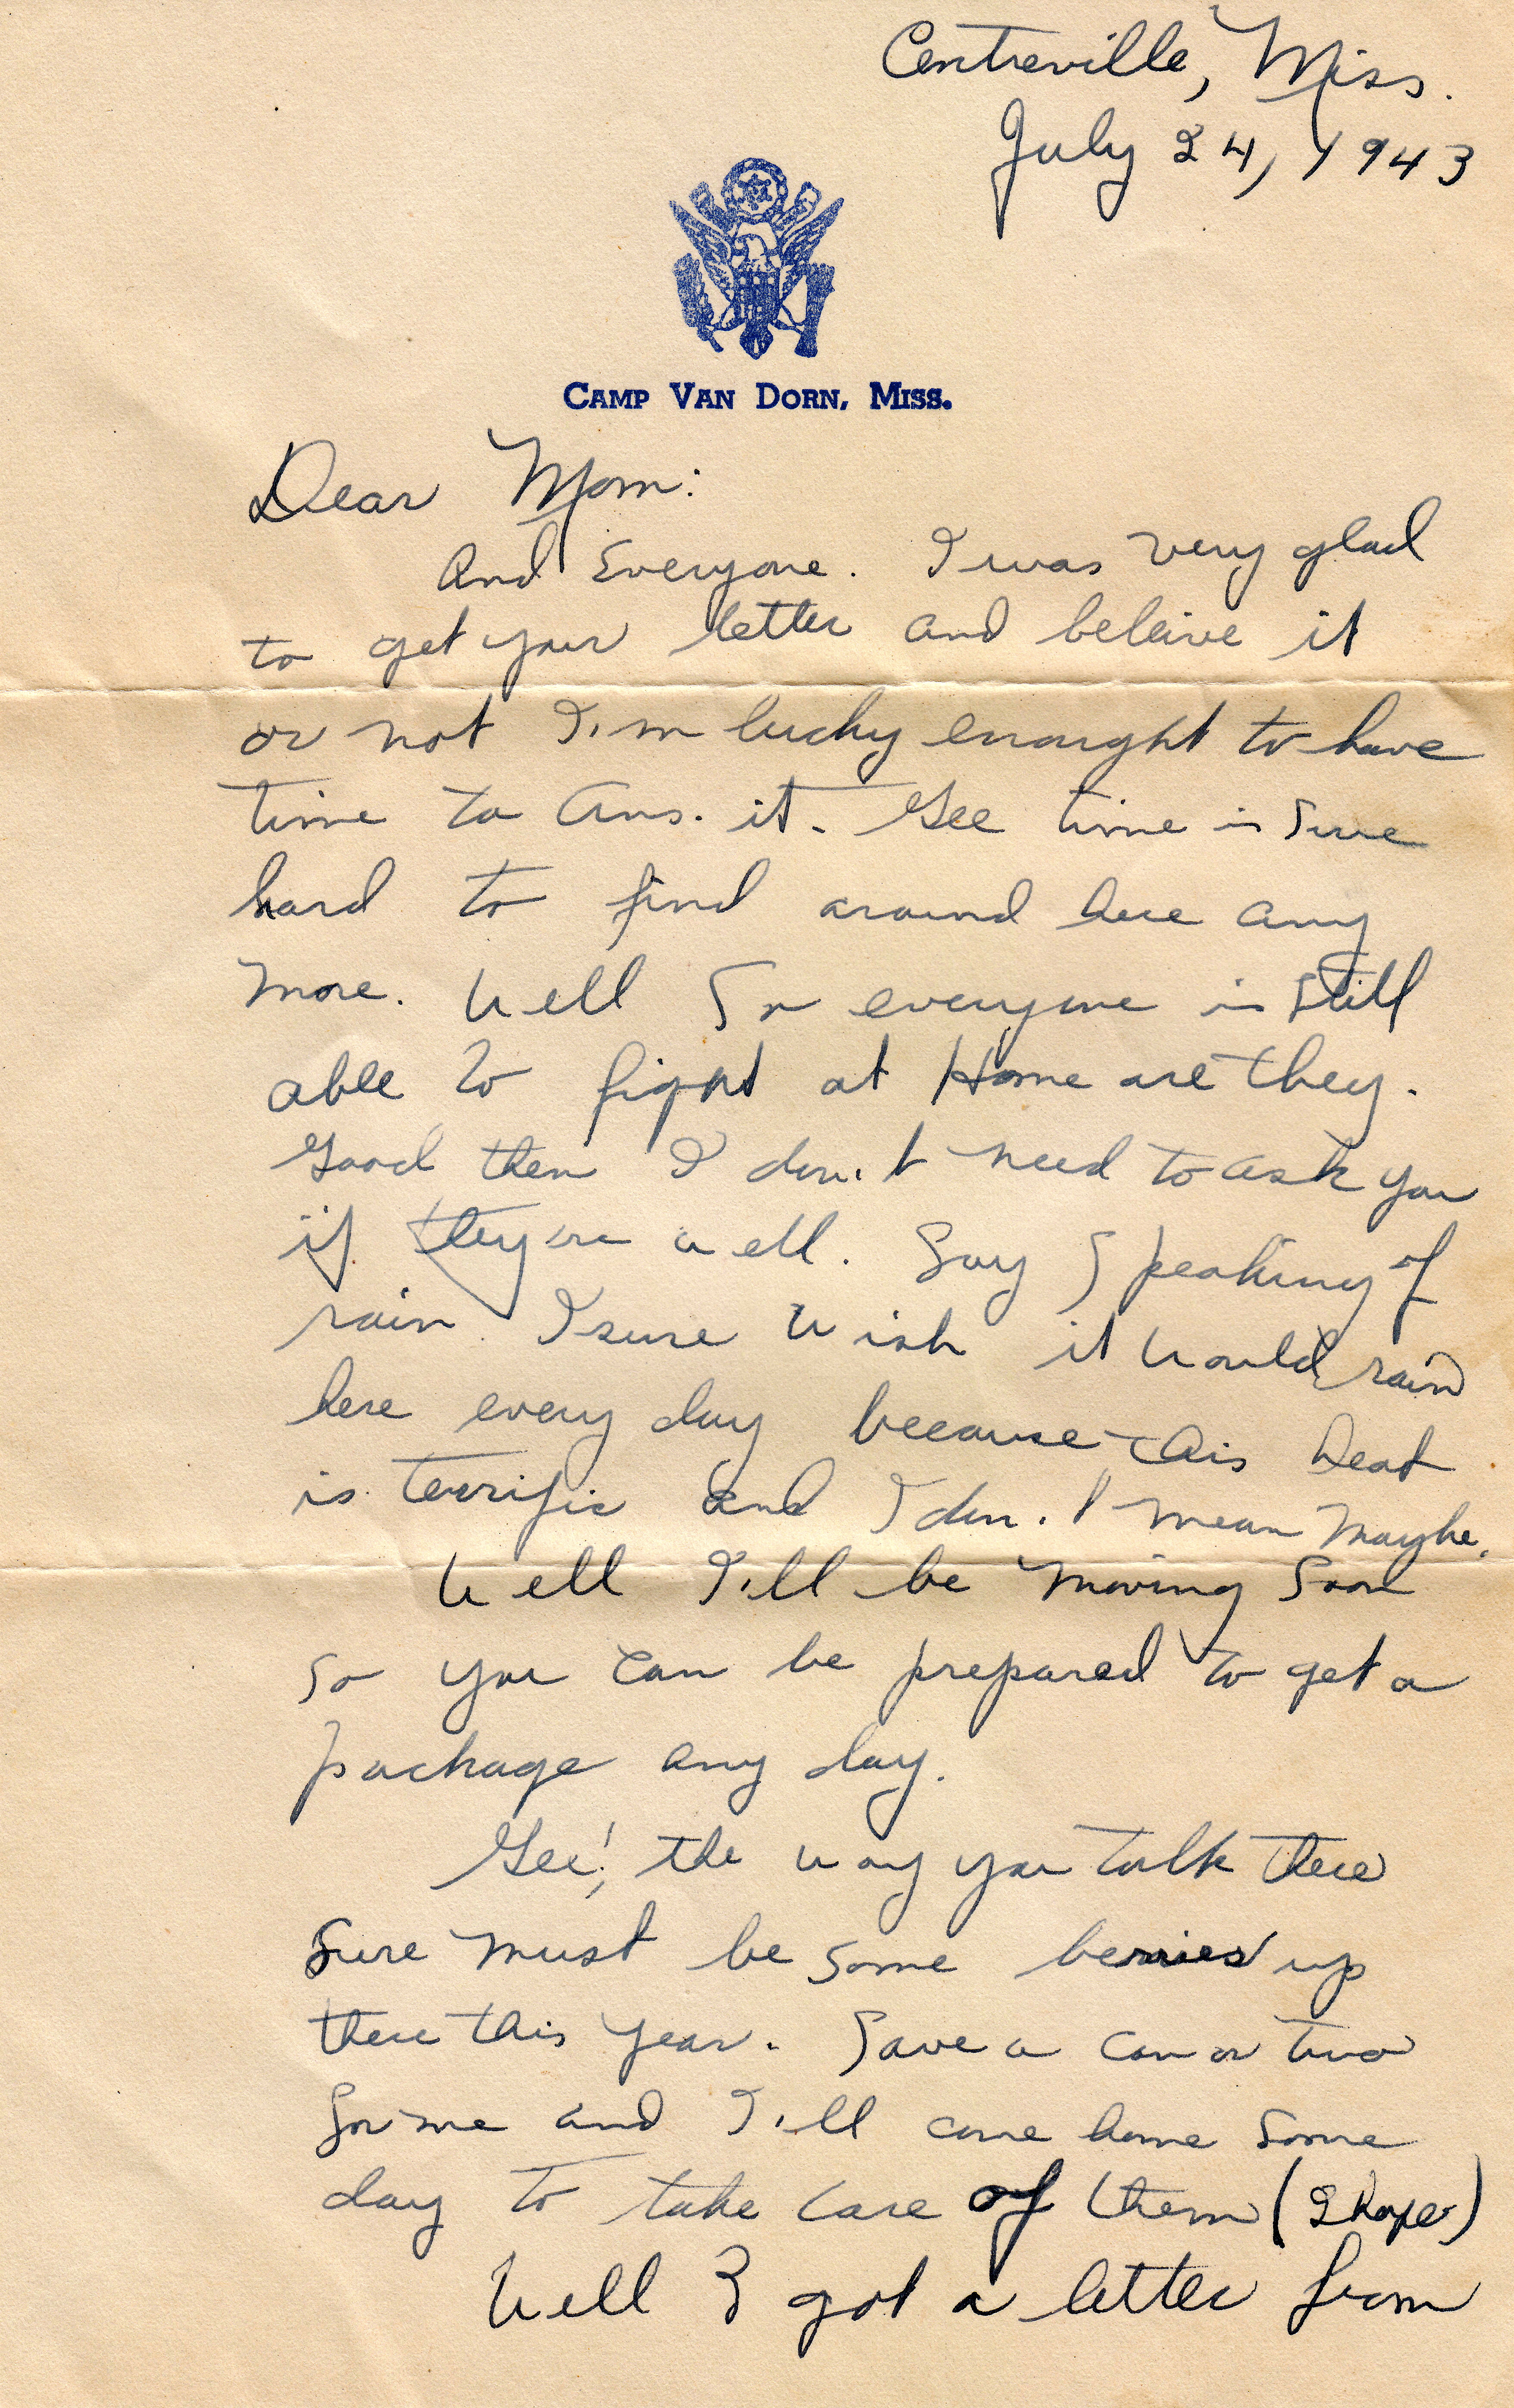 Centreville, Miss.
July 24, 1943
CAMP VAN DORN, MISS.
Dear Mom:
And Everyone. I was very glad
to get your letter and beleive it
or not I'm lucky enought to have
time to Ans. it. Gee time is sure
hard to find around here any
more. Well So everyone is still
able to fight at Home are they.
Good then I don't need to ask you
if they are well. Say Speaking of
rain I sure wish it would rain
here every day because this heat
is terrific and I don't mean maybe.
Well I'll be moving Soon
So you can be prepared to get a
package any day.
Gee! the way you talk there
Sure must be some berries up
there this year. Save a can or two
for me and I'll come home some
day to take care of them (I hope)
Well I got a letter from